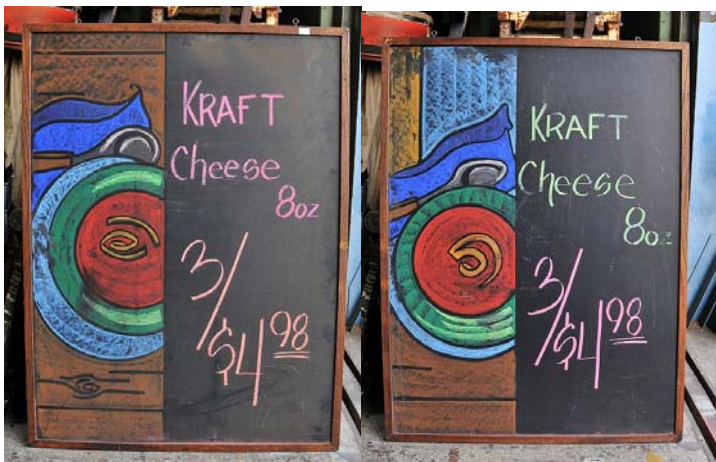 KRAFT
Cheese
8oz
3/$4.98
KRAFT
Cheese
8oz
3/$4.98